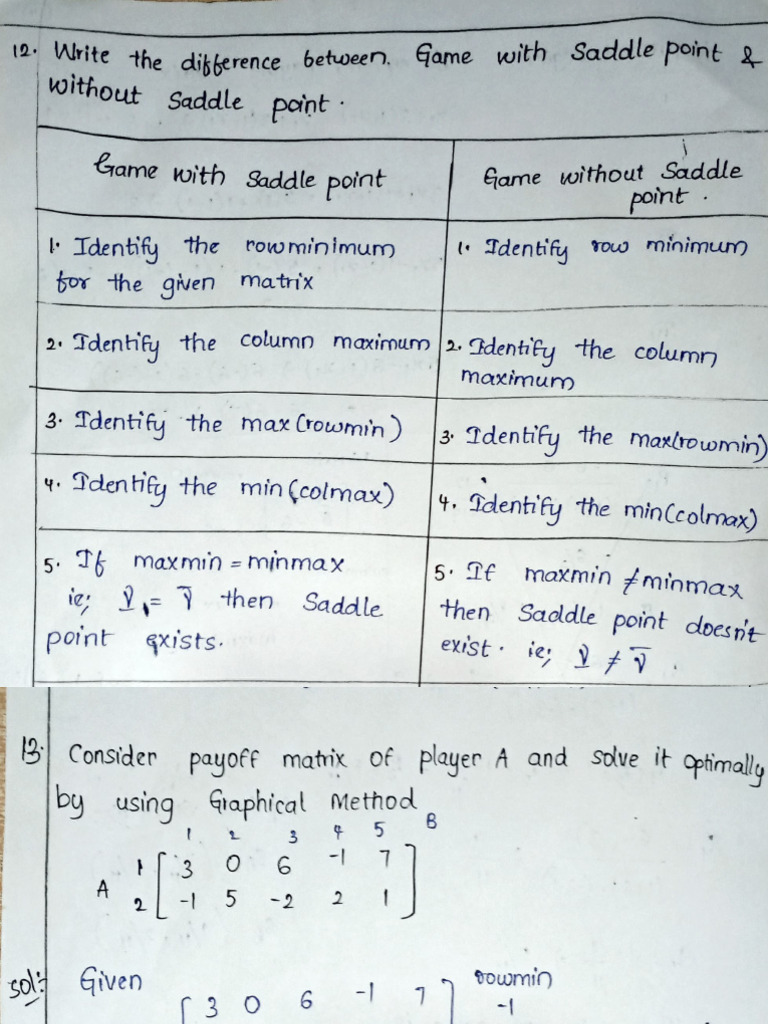 12. Write the difference between. Game with Saddle point &
without Saddle point.
Game with Saddle point
Game without Saddle
point.
1. Identify the rowminimum
for the given matrix
1. Identify row minimum
2. Identify the column maximum
2. Identify the column
maximum
3. Identify the max(rowmin)
3. Identify the max(rowmin)
4. Identify the min(colmax)
4. Identify the min(colmax)
5. If maxmin = minmax
ie; V̲ = V̅ then Saddle
point exists.
5. If maxmin ≠ minmax
then Saddle point doesn't
exist. ie; V̲ ≠ V̅.
13. Consider payoff matrix of player A and solve it optimally
by using Graphical Method
1 2 3 4 5 B
1 [ 3 0 6 -1 7 ]
A
2 [ -1 5 -2 2 1 ]
Sol:- Given
rowmin
[ 3 0 6 -1 7 ] -1